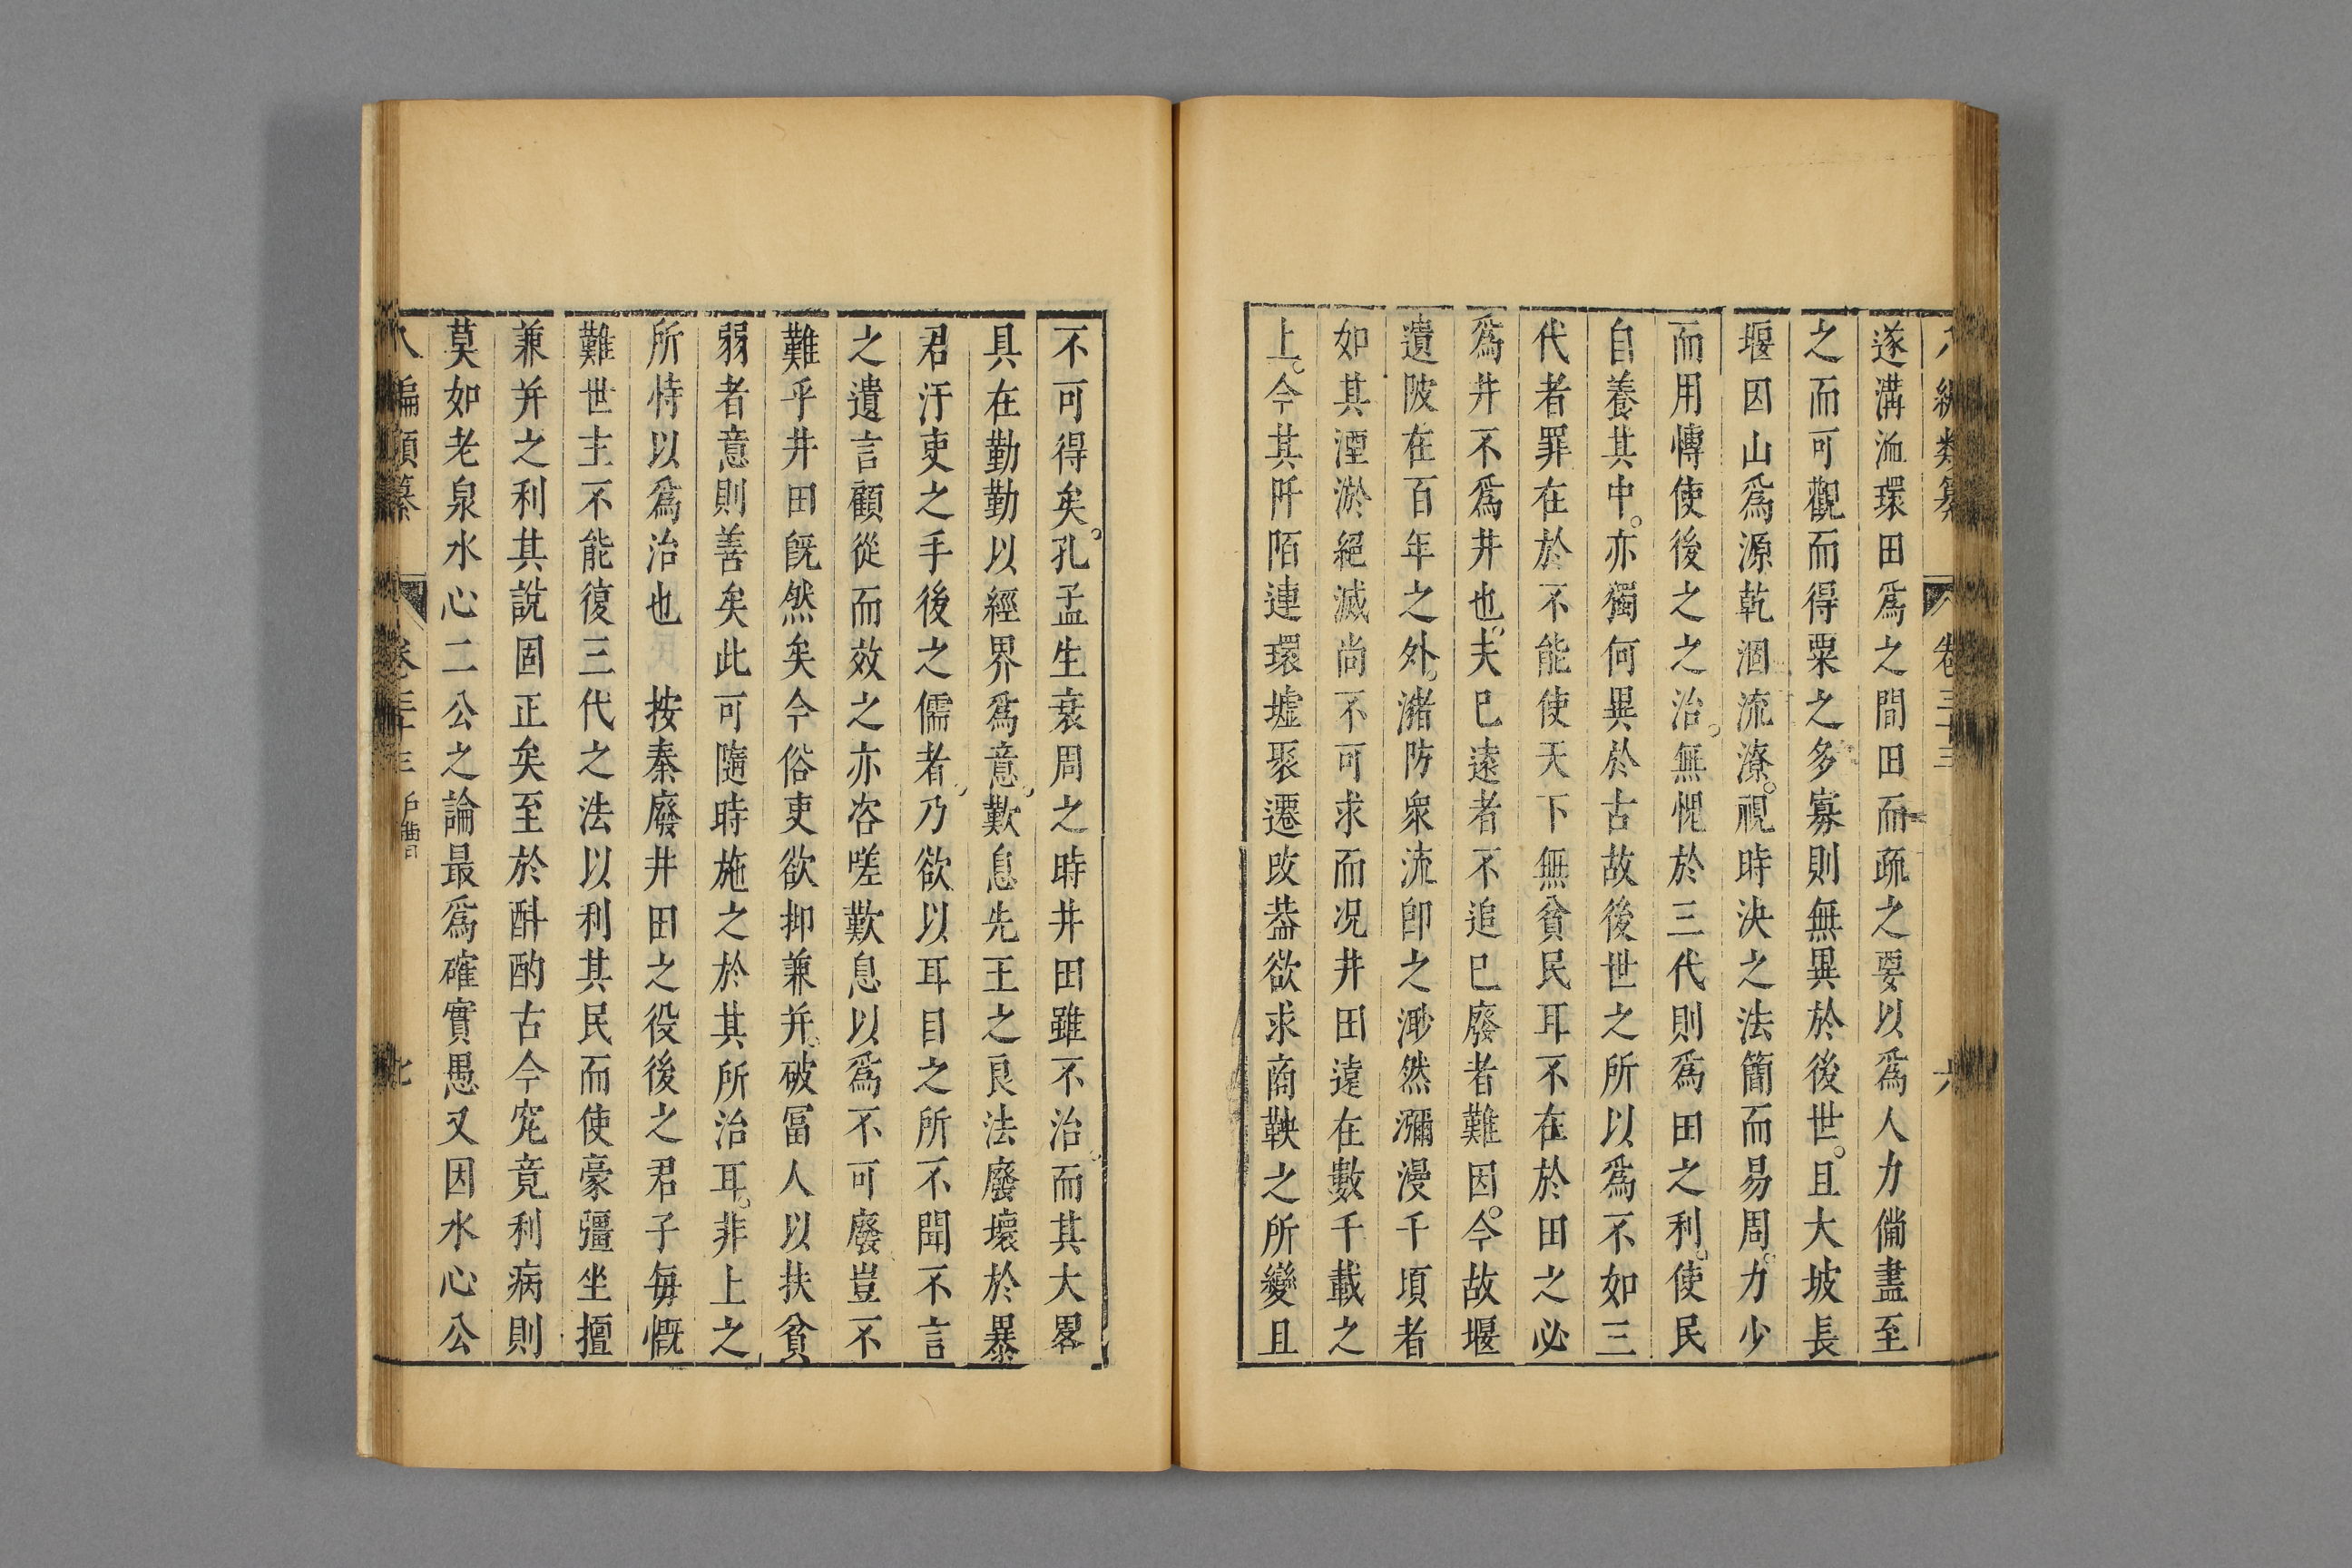 編類纂 卷三十三 六
遂溝洫環田爲之間田而疏之要以爲人力備盡至
之而可觀而得粟之多寡則無異於後世。且大坡長
堰因山爲源乾涸流潦。視時決之法簡而易周。力少
而用博使後之之治。無愧於三代則爲田之利。使民
自養其中。亦獨何異於古故後世之所以爲不如三
代者罪在於不能使天下無貧民耳不在於田之必
爲井不爲井也。夫已遠者不追已廢者難因。今故堰
遺陂在百年之外。瀦防衆流卽之渺然瀰漫千頃者
如其湮淤絕滅尚不可求而况井田遠在數千載之
上。今其阡陌連環墟聚遷改葢欲求商鞅之所變且
不可得矣。孔孟生衰周之時井田雖不治而其大畧
具在勤勤以經界爲意。歎息先王之良法廢壞於暴
君汙吏之手後之儒者。乃欲以耳目之所不聞不言
之遺言顧從而效之亦咨嗟歎息以爲不可廢豈不
難乎井田旣然矣今俗吏欲抑兼并。破冨人以扶貧
弱者意則善矣此可隨時施之於其所治耳。非上之
所恃以爲治也 按秦廢井田之役後之君子每慨
難世主不能復三代之法以利其民而使豪彊坐擅
兼并之利其說固正矣至於斟酌古今究竟利病則
莫如老泉水心二公之論最爲確實愚又因水心公
八編類纂 卷三十三 戶曹 七